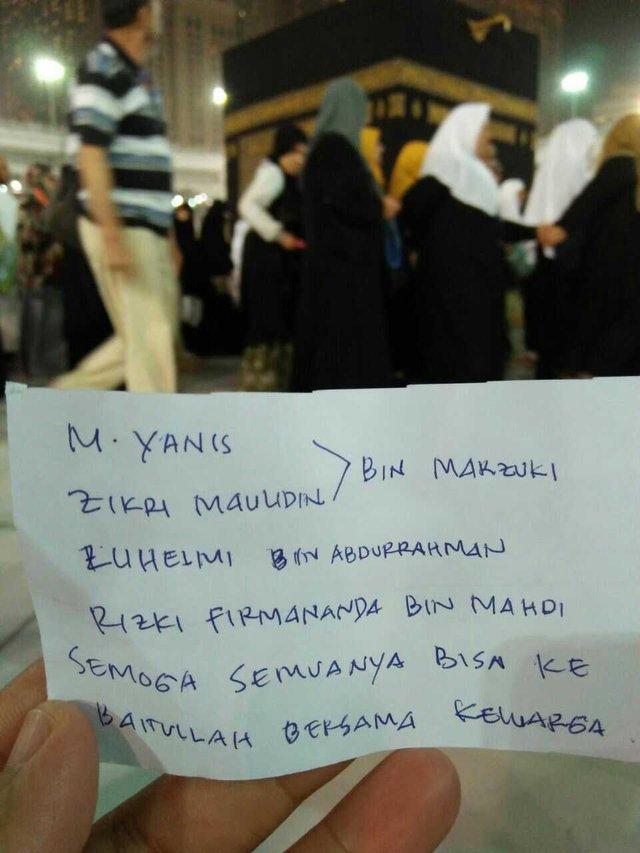 M. YANIS
ZIKRI MAULIDIN > BIN MARZUKI
ZUHELMI BIN ABDURRAHMAN
RIZKI FIRMANANDA BIN MAHDI
SEMOGA SEMUANYA BISA KE
BAITULLAH BERSAMA KELUARGA